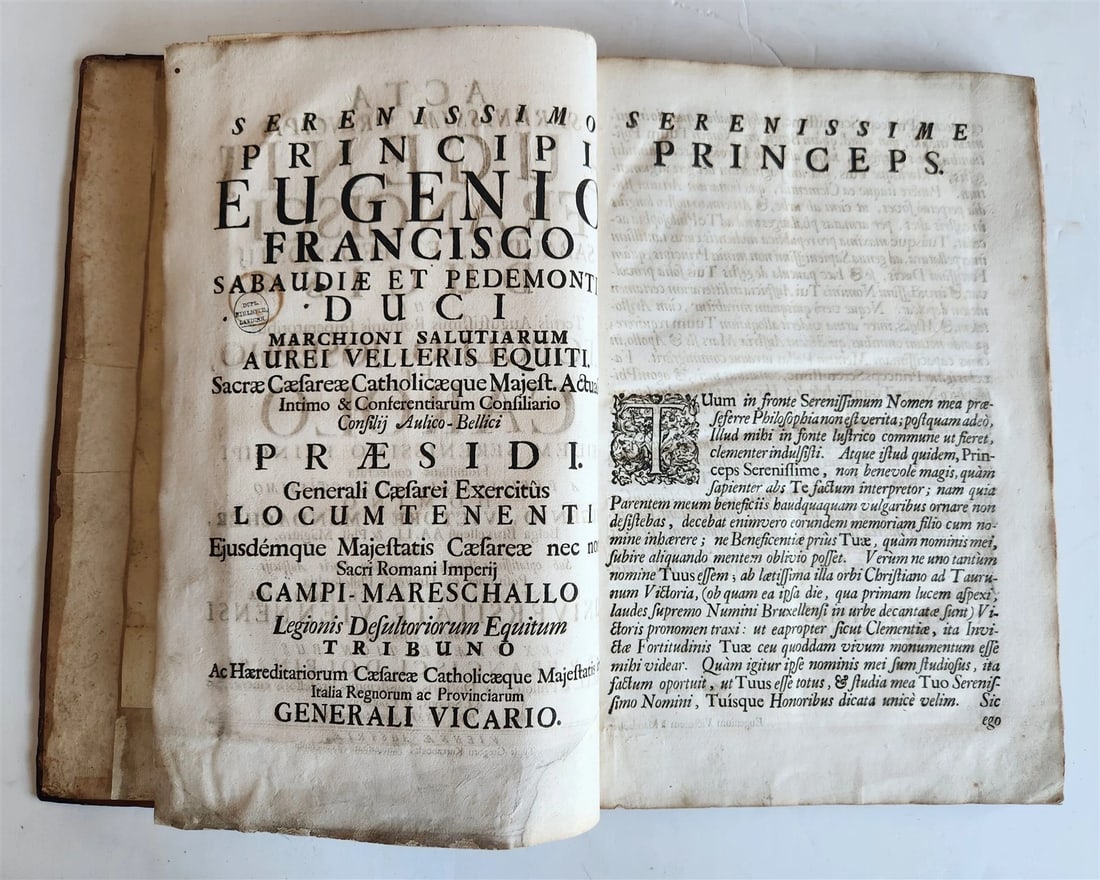 SERENISSIMO
PRINCIPI
EUGENIO
FRANCISCO
SABAUDIÆ ET PEDEMONTI
DUCI
MARCHIONI SALUTIARUM
AUREI VELLERIS EQUITI.
Sacræ Cæſareæ Catholicæque Majeſt. Actua
Intimo & Conferentiarum Conſiliario
Conſilij Aulico-Bellici
PRÆSIDI.
Generali Cæſarei Exercitûs
LOCUMTENENTI
Ejusdémque Majeſtatis Cæſareæ nec no
Sacri Romani Imperij
CAMPI-MARESCHALLO
Legionis Deſultoriorum Equitum
TRIBUNO
Ac Hæreditariorum Cæſareæ Catholicæque Majeſtatis
Italia Regnorum ac Provinciarum
GENERALI VICARIO.
DUPL.
SERENISSIME
PRINCEPS.
TUum in fronte Sereniſſimum Nomen mea præ-
ſeferre Philoſophia non eſt verita; poſtquam adeò,
Illud mihi in fonte luſtrico commune ut fieret,
clementer indulſiſti. Atque iſtud quidem, Prin-
ceps Sereniſſime, non benevole magis, quàm
ſapienter abs Te factum interpretor; nam quia
Parentem meum beneficiis haudquaquam vulgaribus ornare non
deſiſtebas, decebat enimvero eorundem memoriam filio cum no-
mine inhærere; ne Beneficentiæ priùs Tuæ, quàm nominis mei,
ſubire aliquando mentem oblivio poſſet. Verùm ne uno tantùm
nomine Tuus eſſem; ab lætiſſima illa orbi Chriſtiano ad Tauru-
num Victoria, (ob quam ea ipſa die, qua primam lucem aſpexi,
laudes ſupremo Numini Bruxellenſi in urbe decantatæ ſunt) Vi-
ctoris pronomen traxi: ut eapropter ſicut Clementiæ, ita Invi-
ctæ Fortitudinis Tuæ ceu quoddam vivum monumentum eſſe
mihi videar. Quàm igitur ipſe nominis mei ſum ſtudioſus, ita
factum oportuit, ut Tuus eſſe totus, & ſtudia mea Tuo Sereniſ-
ſimo Nomini, Tuísque Honoribus dicata unicè velim. Sic
ego